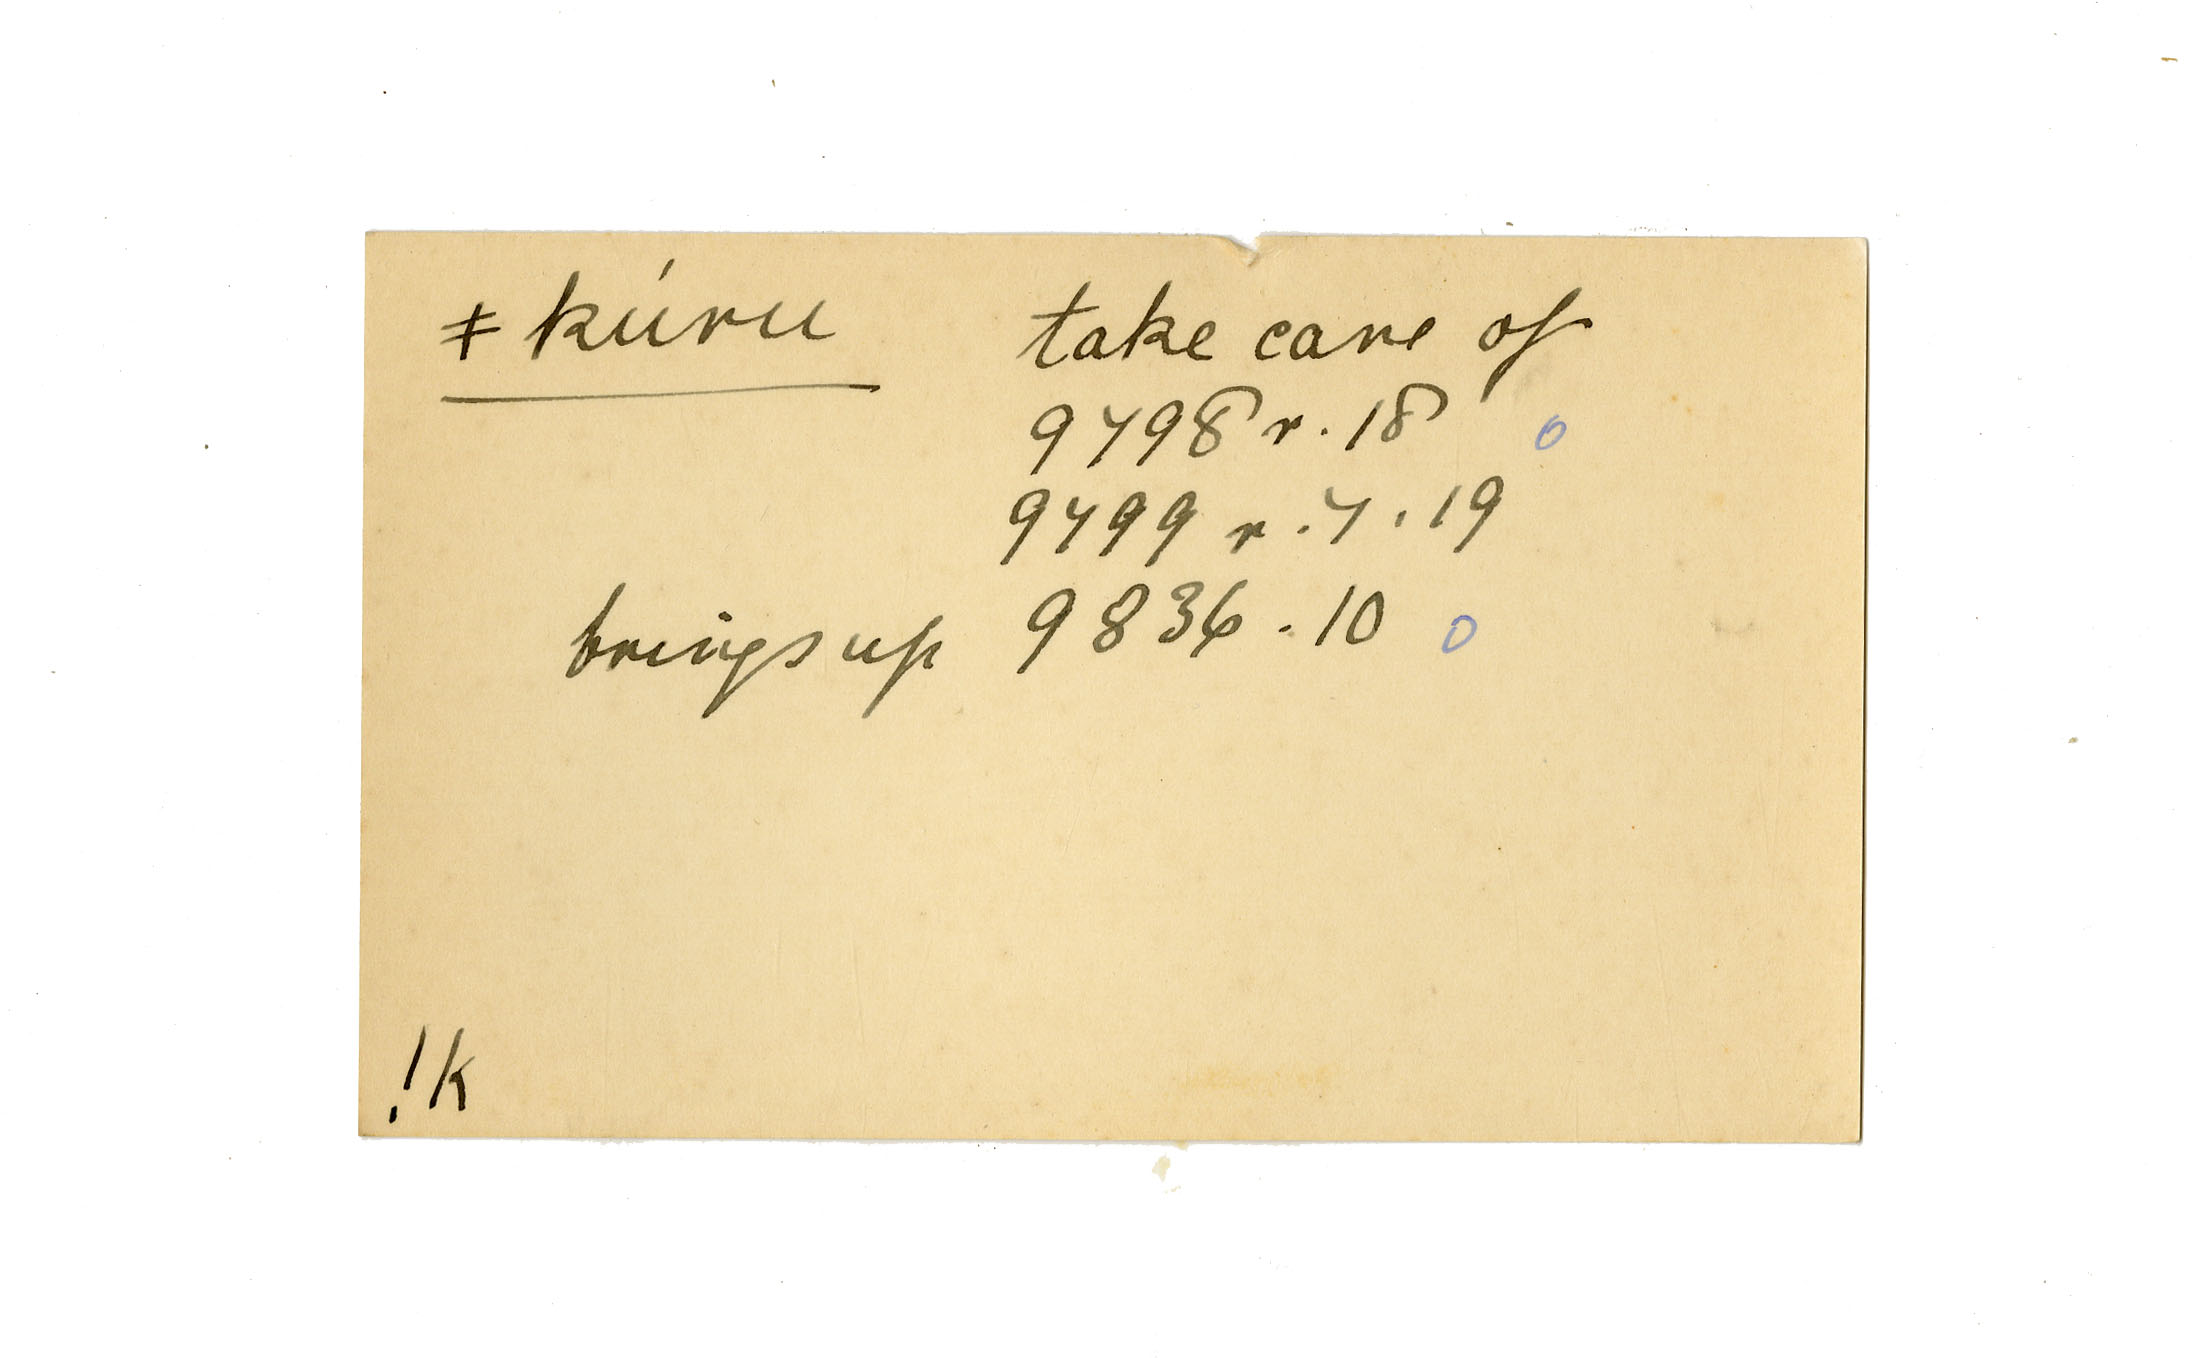 ǂkúru take care of
9798 r. 18 o
9799 r. 7. 19
brings up 9836. 10 o
!k